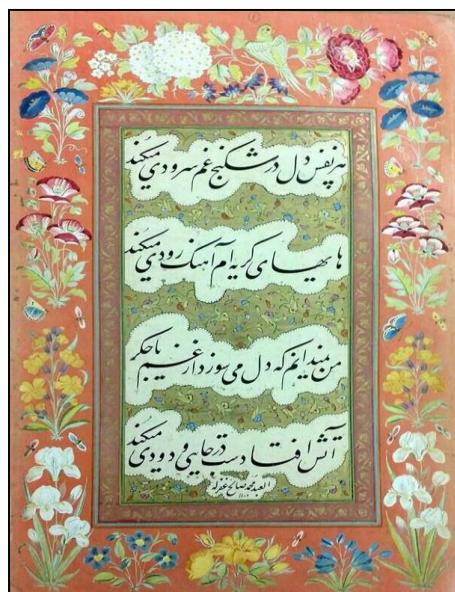 هر نفس دل در شکنج غم سرودی میکند
های های گریه ام آهنگ رودی میکند
من نمیدانم که دل می سوزد از غم یا جگر
آتش افتادست در جایی و دودی میکند
العبد محمد صالح غفرله